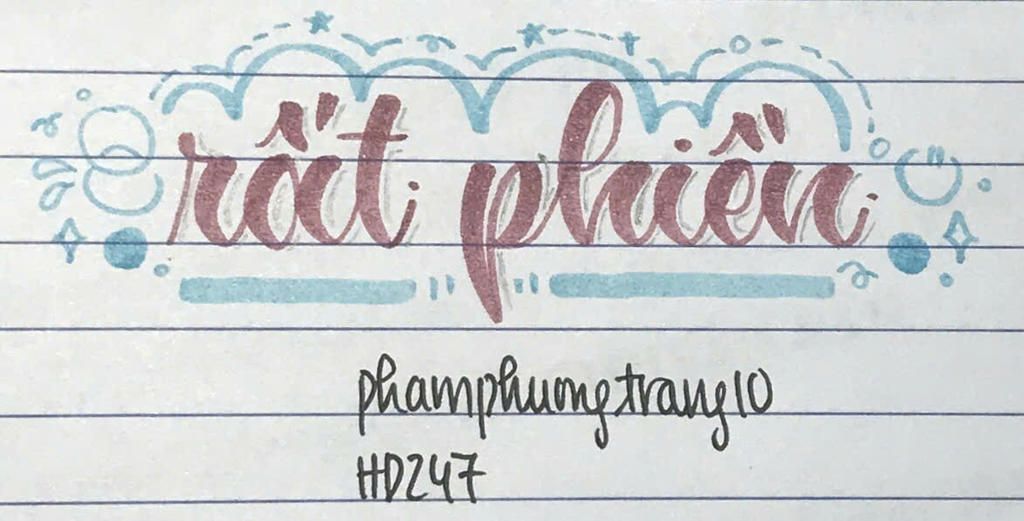 rất phiền
phamphuongtrang10
HD247